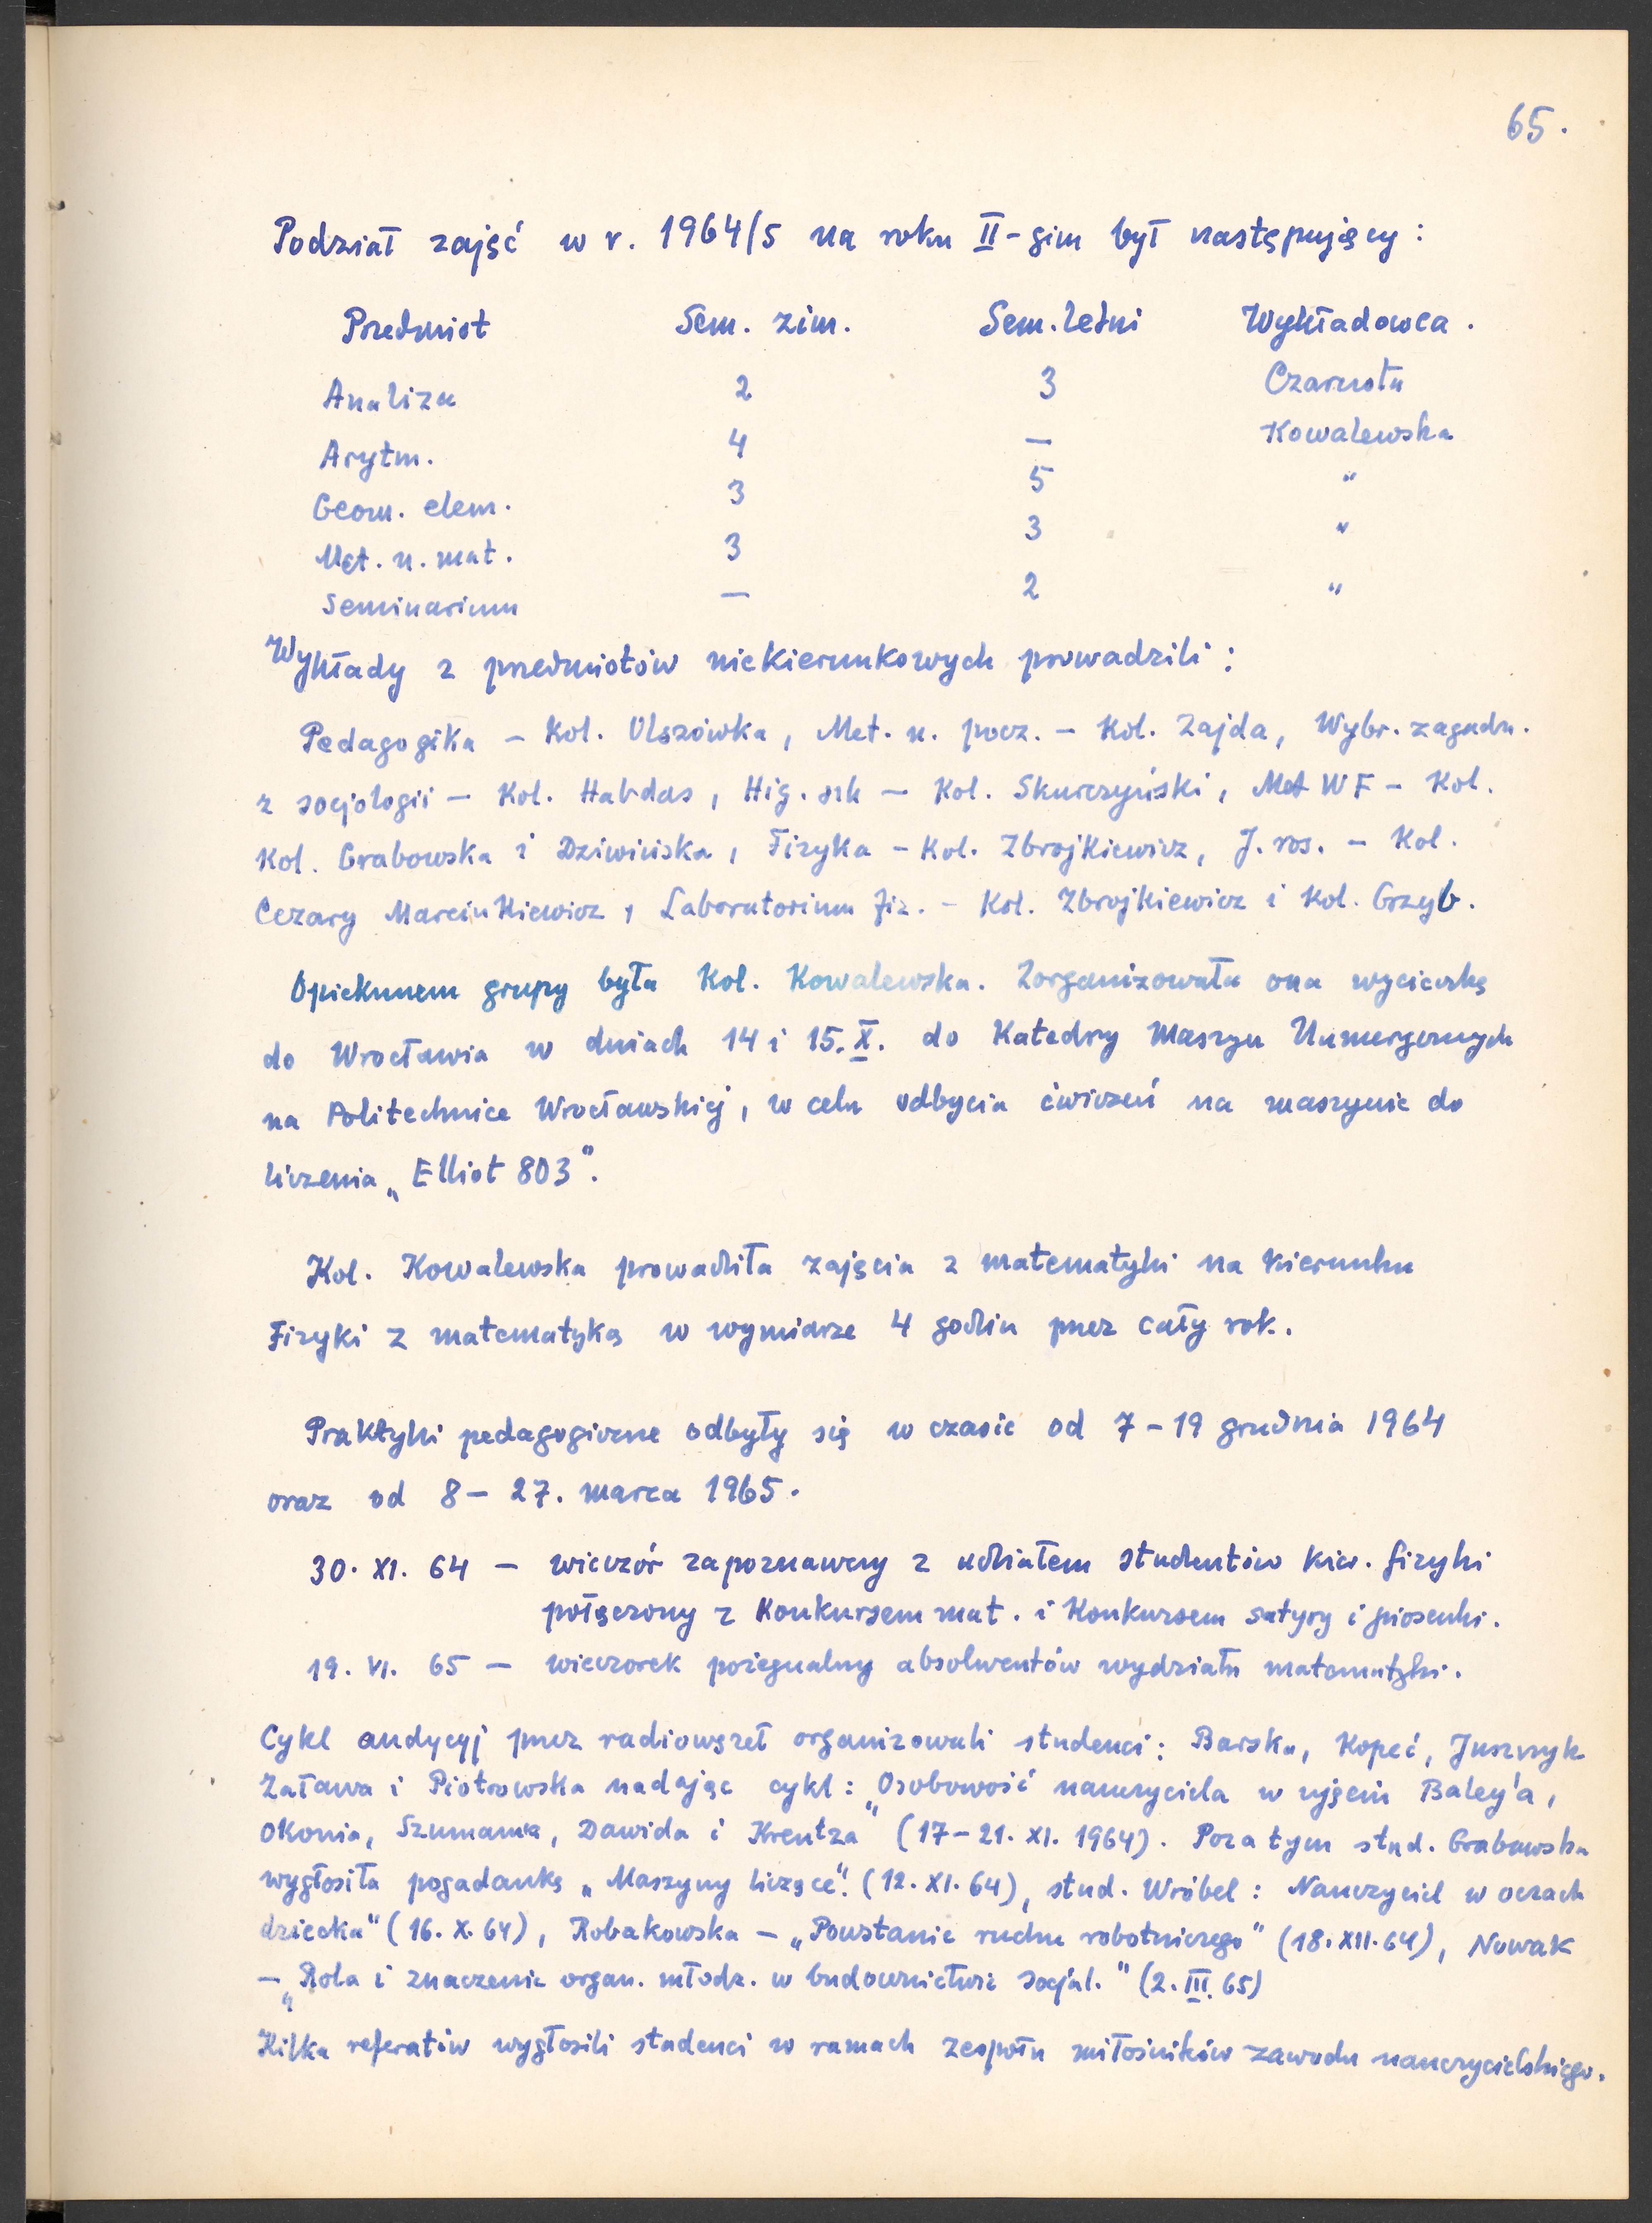 65.
Podział zajęć w r. 1964/5 na roku II-gim był następujący:
Przedmiot Sem. zim. Sem. letni Wykładowca.
Analiza 2 3 Czarnota
Arytm. 4 — Kowalewska
Geom. elem. 3 5 "
Met. n. mat. 3 3 "
Seminarium — 2 "
Wykłady z przedmiotów niekierunkowych prowadzili:
Pedagogika – Kol. Olszówka, Met. n. pocz. – Kol. Zajda, Wybr. zagadn.
z socjologii – Kol. Habdas, Hig. szk – Kol. Skurczyński, Met WF – Kol.
Kol. Grabowska i Dziwińska, Fizyka – Kol. Zbrojkiewicz, J. ros. – Kol.
Cezary Marcinkiewicz, Laboratorium fiz. – Kol. Zbrojkiewicz i Kol. Grzyb.
Opiekunem grupy była Kol. Kowalewska. Zorganizowała ona wycieczkę
do Wrocławia w dniach 14 i 15.X. do Katedry Maszyn Numerycznych
na Politechnice Wrocławskiej, w celu odbycia ćwiczeń na maszynie do
liczenia „Elliot 803".
Kol. Kowalewska prowadziła zajęcia z matematyki na kierunku
Fizyki z matematyką w wymiarze 4 godzin przez cały rok.
Praktyki pedagogiczne odbyły się w czasie od 7–19 grudnia 1964
oraz od 8–27. marca 1965.
30. XI. 64 – wieczór zapoznawczy z udziałem studentów kier. fizyki
połączony z Konkursem mat. i Konkursem satyry i piosenki.
19. VI. 65 – wieczorek pożegnalny absolwentów wydziału matematyki.
Cykl audycyj przez radiowęzeł organizowali studenci: Barska, Kopeć, Juszczyk
Zaława i Piotrowska nadając cykl: „Osobowość nauczyciela w ujęciu Baley'a,
Okonia, Szumana, Dawida i Kreutza" (17–21. XI. 1964). Poza tym stud. Grabowska
wygłosiła pogadankę „Maszyny liczące". (12. XI. 64), stud. Wróbel: Nauczyciel w oczach
dziecka" (16. X. 64), Robakowska – „Powstanie ruchu robotniczego" (18. XII. 64), Nowak
– „Rola i znaczenie organ. młodz. w budownictwie socjal." (2. III. 65)
Kilka referatów wygłosili studenci w ramach zespołu miłośników zawodu nauczycielskiego.